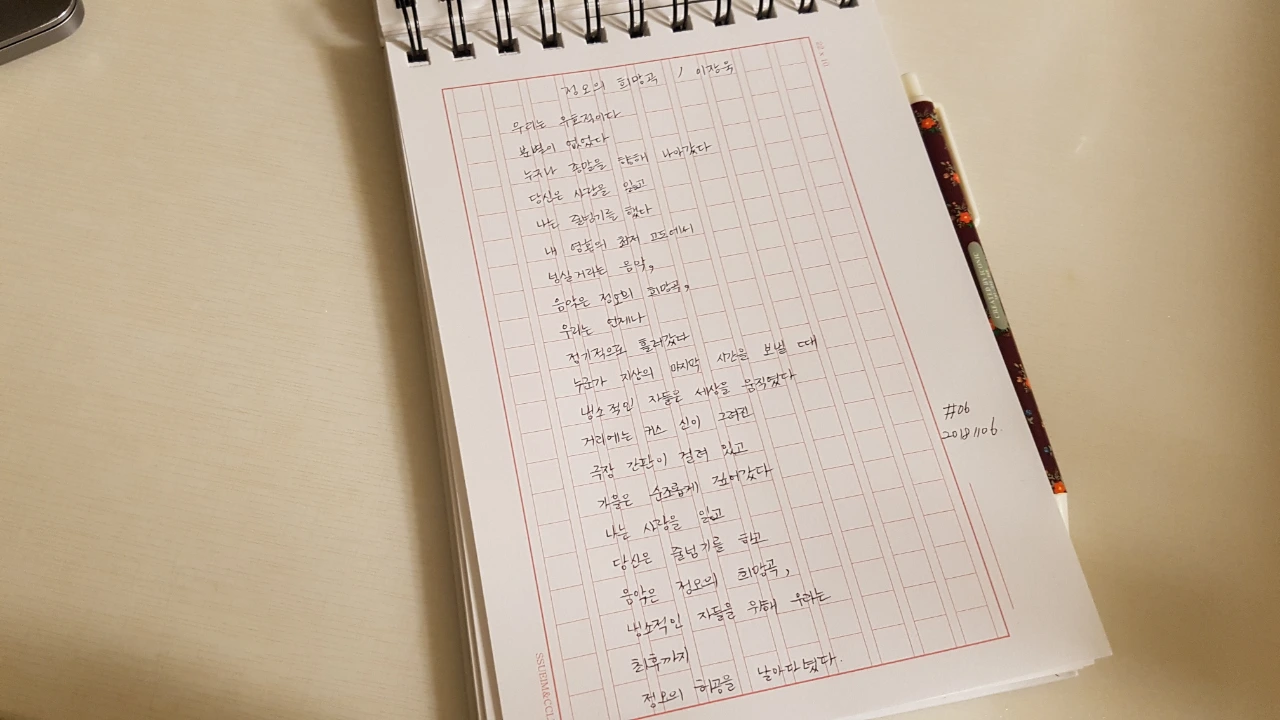 정오의 희망곡 / 이장욱
우리는 우호적이다
분별이 없었다
누구나 종말을 향해 나아갔다
당신은 사랑을 잃고
나는 줄넘기를 했다
내 영혼의 최저 고도에서
넘실거리는 음악,
음악은 정오의 희망곡,
우리는 언제나
정기적으로 흘러갔다
누군가 지상의 마지막 시간을 보낼 때
냉소적인 자들은 세상을 움직였다
거리에는 키스 신이 그려진
극장 간판이 걸려 있고
가을은 순조롭게 깊어갔다
나는 사랑을 잃고
당신은 줄넘기를 하고
음악은 정오의 희망곡,
냉소적인 자들을 위해 우리는
최후까지
정오의 허공을 날아다녔다.
#06
20181106.